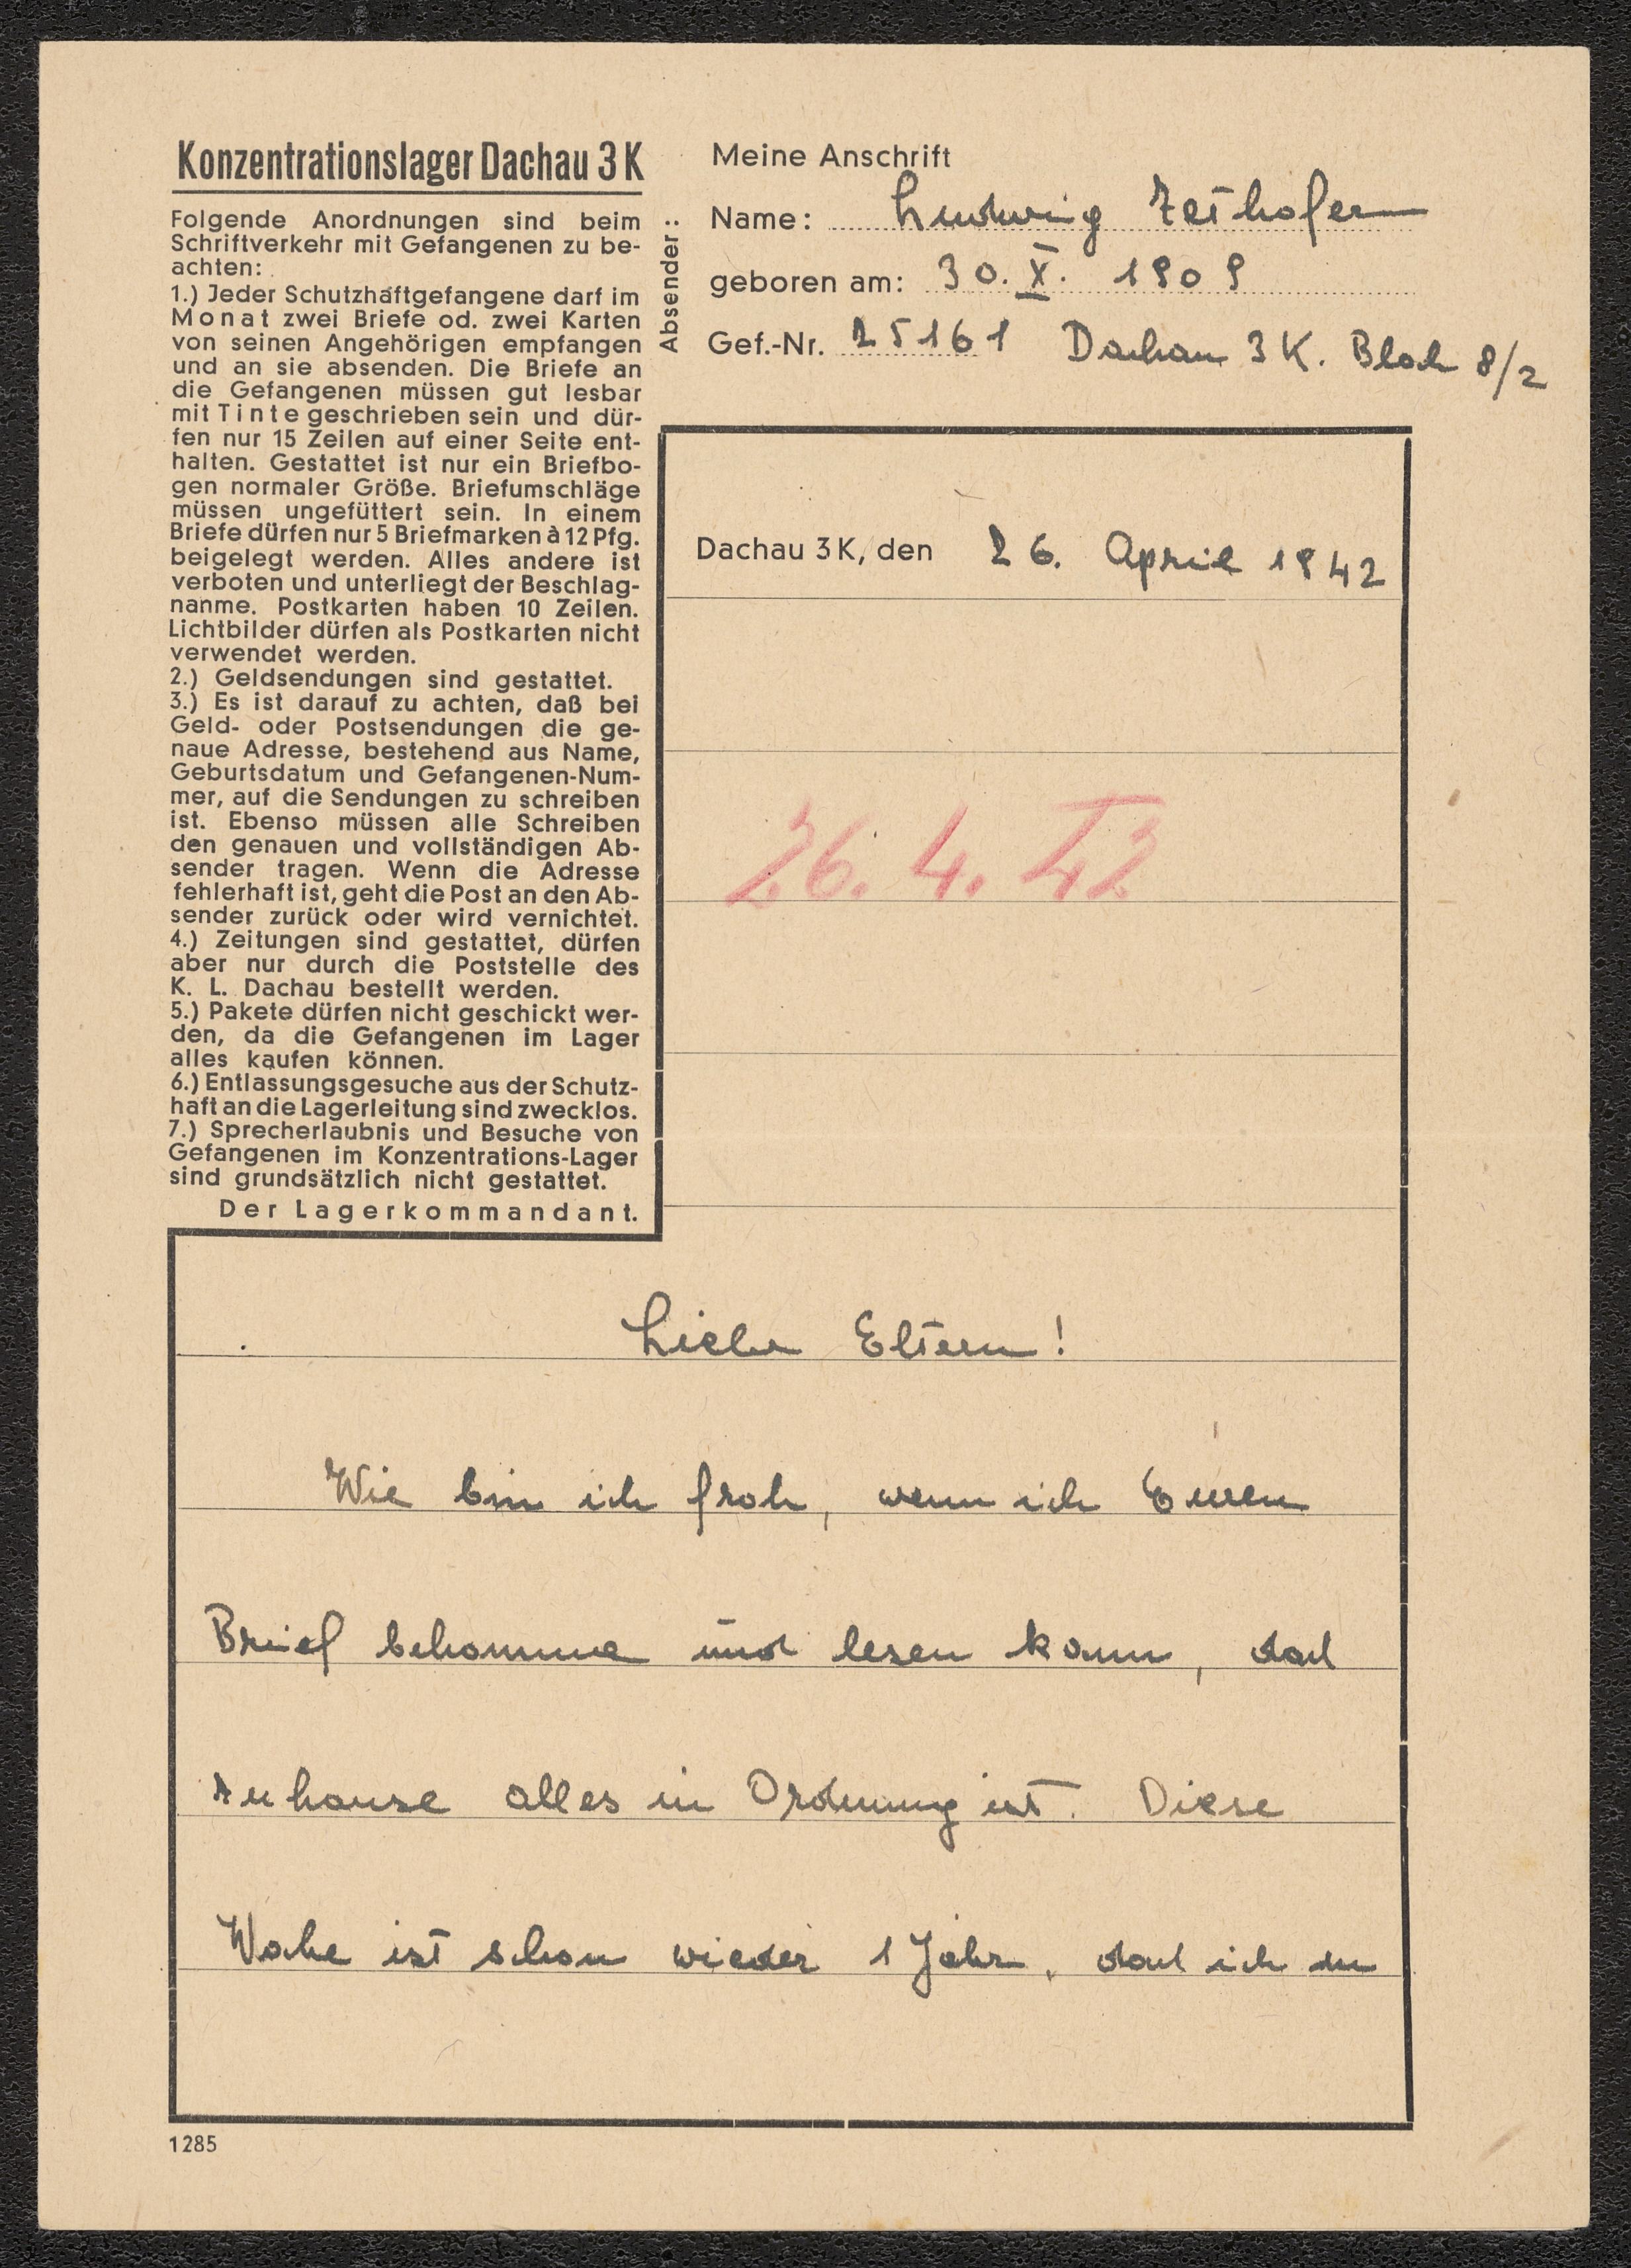 Konzentrationslager Dachau 3 K
Folgende Anordnungen sind beim
Schriftverkehr mit Gefangenen zu be-
achten:
1.) Jeder Schutzhäftgefangene darf im
Monat zwei Briefe od. zwei Karten
von seinen Angehörigen empfangen
und an sie absenden. Die Briefe an
die Gefangenen müssen gut lesbar
mit Tinte geschrieben sein und dür-
fen nur 15 Zeilen auf einer Seite ent-
halten. Gestattet ist nur ein Briefbo-
gen normaler Größe. Briefumschläge
müssen ungefüttert sein. In einem
Briefe dürfen nur 5 Briefmarken à 12 Pfg.
beigelegt werden. Alles andere ist
verboten und unterliegt der Beschlag-
nanme. Postkarten haben 10 Zeilen.
Lichtbilder dürfen als Postkarten nicht
verwendet werden.
2.) Geldsendungen sind gestattet.
3.) Es ist darauf zu achten, daß bei
Geld- oder Postsendungen die ge-
naue Adresse, bestehend aus Name,
Geburtsdatum und Gefangenen-Num-
mer, auf die Sendungen zu schreiben
ist. Ebenso müssen alle Schreiben
den genauen und vollständigen Ab-
sender tragen. Wenn die Adresse
fehlerhaft ist, geht die Post an den Ab-
sender zurück oder wird vernichtet.
4.) Zeitungen sind gestattet, dürfen
aber nur durch die Poststelle des
K. L. Dachau bestellt werden.
5.) Pakete dürfen nicht geschickt wer-
den, da die Gefangenen im Lager
alles kaufen können.
6.) Entlassungsgesuche aus der Schutz-
haft an die Lagerleitung sind zwecklos.
7.) Sprecherlaubnis und Besuche von
Gefangenen im Konzentrations-Lager
sind grundsätzlich nicht gestattet.
Der Lagerkommandant.
Absender:
Meine Anschrift
Name: Ludwig Zeithofer
geboren am: 30. X. 1909
Gef.-Nr. 25161 Dachau 3 K. Block 8/2
Dachau 3 K, den 26. April 1942
26. 4. 42
Liebe Eltern!
Wie bin ich froh, wenn ich Euren
Brief bekomme und lesen kann, daß
zuhause alles in Ordnung ist. Diese
Woche ist schon wieder 1 Jahr, daß ich in
1285